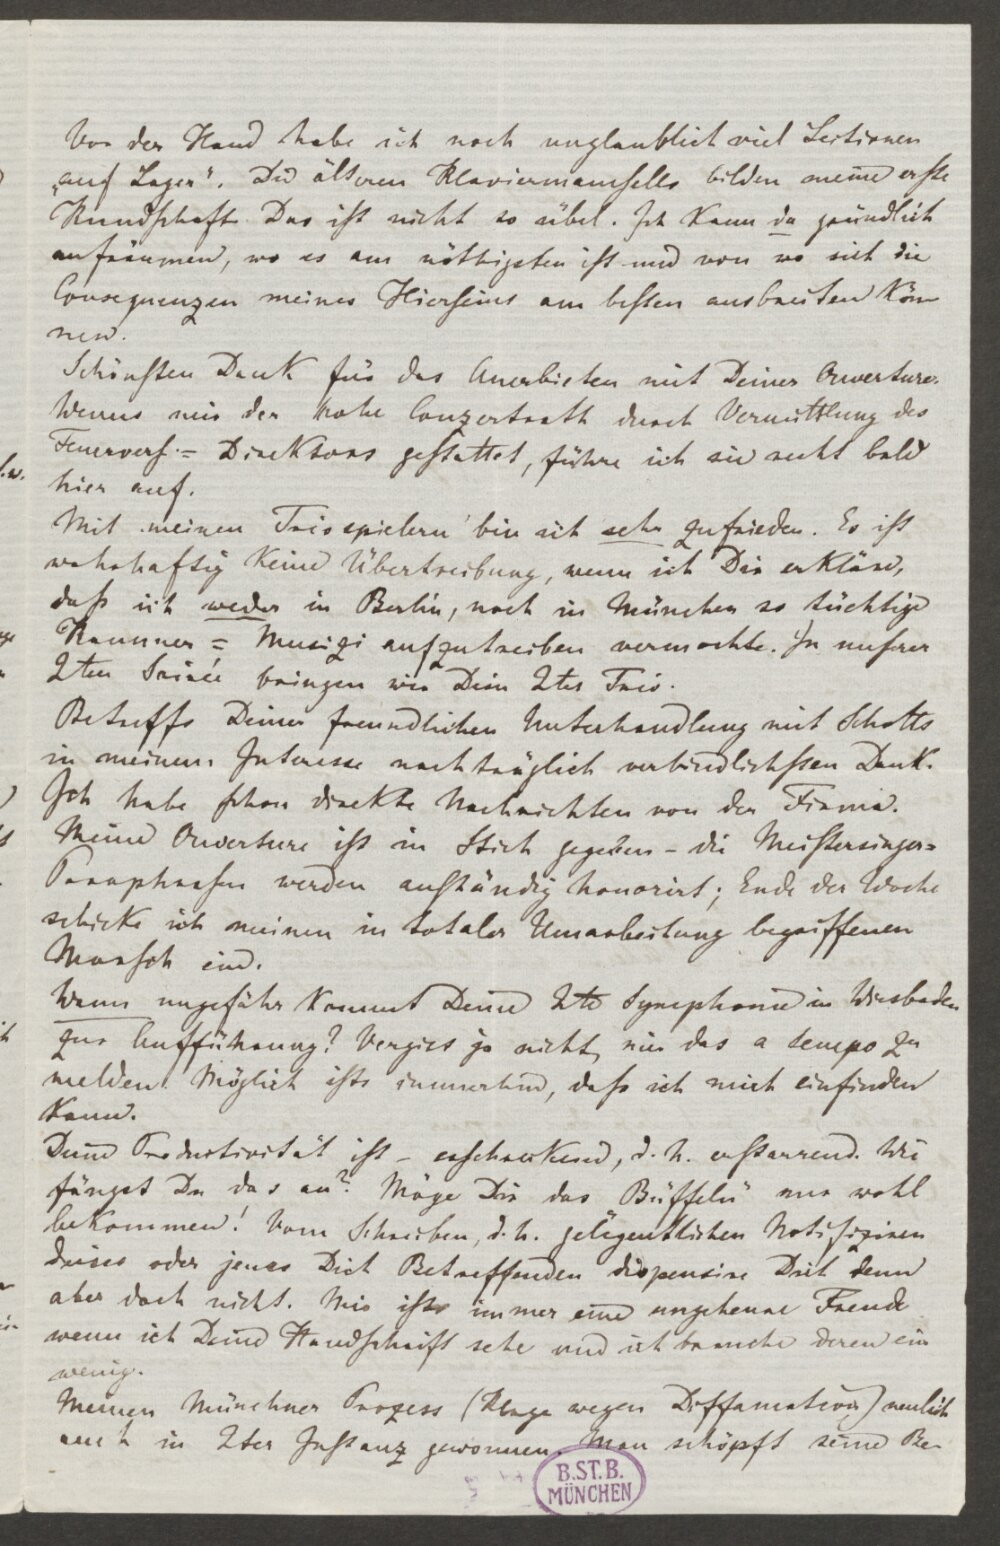 Vor der Hand habe ich noch unglaublich viel Lectionen
„auf Lager“. Die älteren Klaviermamsells bilden meine erste
Kundschaft. Das ist nicht so übel. Ich kann da gründlich
aufräumen, wo es am nöthigsten ist und von wo sich die
Consequenzen meines Hierseins am besten ausbreiten kön
nen.
Schönsten Dank für das Anerbieten mit Deiner Ouverture.
Wenns mir der hohe Conzertrath durch Vermittlung des
Feuervers.= Direktors gestattet, führe ich sie recht bald
hier auf.
Mit meinen Triospielern bin ich sehr zufrieden. Es ist
wahrhaftig keine Übertreibung, wenn ich Dir erkläre,
daß ich weder in Berlin, noch in München so tüchtige
Kammer = Musizi aufzutreiben vermochte. In unsrer
2ten Soirée bringen wir Dein 2tes Trio.
Betreffs Deiner freundlichen Unterhandlung mit Schotts
in meinem Interesse nachträglich verbindlichsten Dank.
Ich habe schon direkte Nachrichten von der Firma.
Meine Ouverture ist in Stich gegeben – die Meistersinger=
Paraphrasen werden anständig honorirt; Ende der Woche
schicke ich meinen in totaler Umarbeitung begriffenen
Marsch ein.
Wann ungefähr kommt Deine 2te Symphonie in Wiesbaden
zur Aufführung? Vergiss ja nicht, mir das a tempo zu
melden. Möglich ists immerhin, daß ich mich einfinden
kann.
Deine Productivität ist – erschreckend, d. h. erstarrend. Wie
fängst Du das an? Möge Dir das Büffeln nur wohl
bekommen! Vom Schreiben, d. h. gelegentlichen Notifiziren
dieses oder jenes Dich Betreffenden dispensire Dich denn
aber doch nicht. Mir ists immer eine ungeheure Freude
wenn ich Deine Handschrift sehe und ich brauche deren ein
wenig.
Meinen Münchner Prozess (Klage wegen Diffamation) neulich
auch in 2ter Instanz gewonnen. Man schöpft seine Be-
B.ST.B.
MÜNCHEN